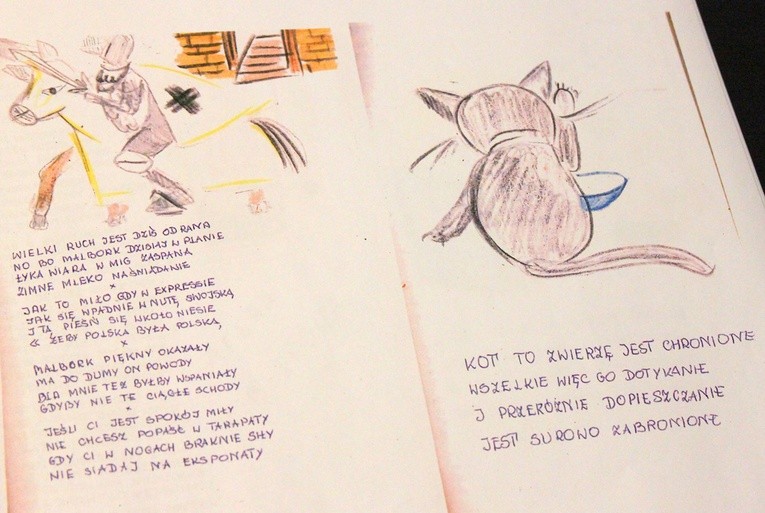 WIELKI RUCH JEST DZIŚ OD RANA
NO BO MALBORK DZISIAJ W PLANIE
ŁYKA WIARA W MIG ZASPANA
ZIMNE MLEKO NA ŚNIADANIE
x
JAK TO MIŁO GDY W EXPRESSIE
JAK SIĘ WPADNIE W NUTĘ SWOJSKĄ
I TĄ PIEŚŃ SIĘ WKOŁO NIESIE
« ŻEBY POLSKA BYŁA POLSKĄ,
x
MALBORK PIĘKNY OKAZAŁY
MA DO DUMY ON POWODY
DLA MNIE TEŻ BYŁBY WSPANIAŁY
GDYBY NIE TE CIĄGŁE SCHODY
x
JEŚLI CI JEST SPOKÓJ MIŁY
NIE CHCESZ POPAŚĆ W TARAPATY
GDY CI W NOGACH BRAKNIE SIŁY
NIE SIADAJ NA EKSPONATY
KOT TO ZWIERZĘ JEST CHRONIONE
WSZELKIE WIĘC GO DOTYKANIE
I PRZERÓŻNIE DOPIESZCZANIE
JEST SUROWO ZABRONIONE